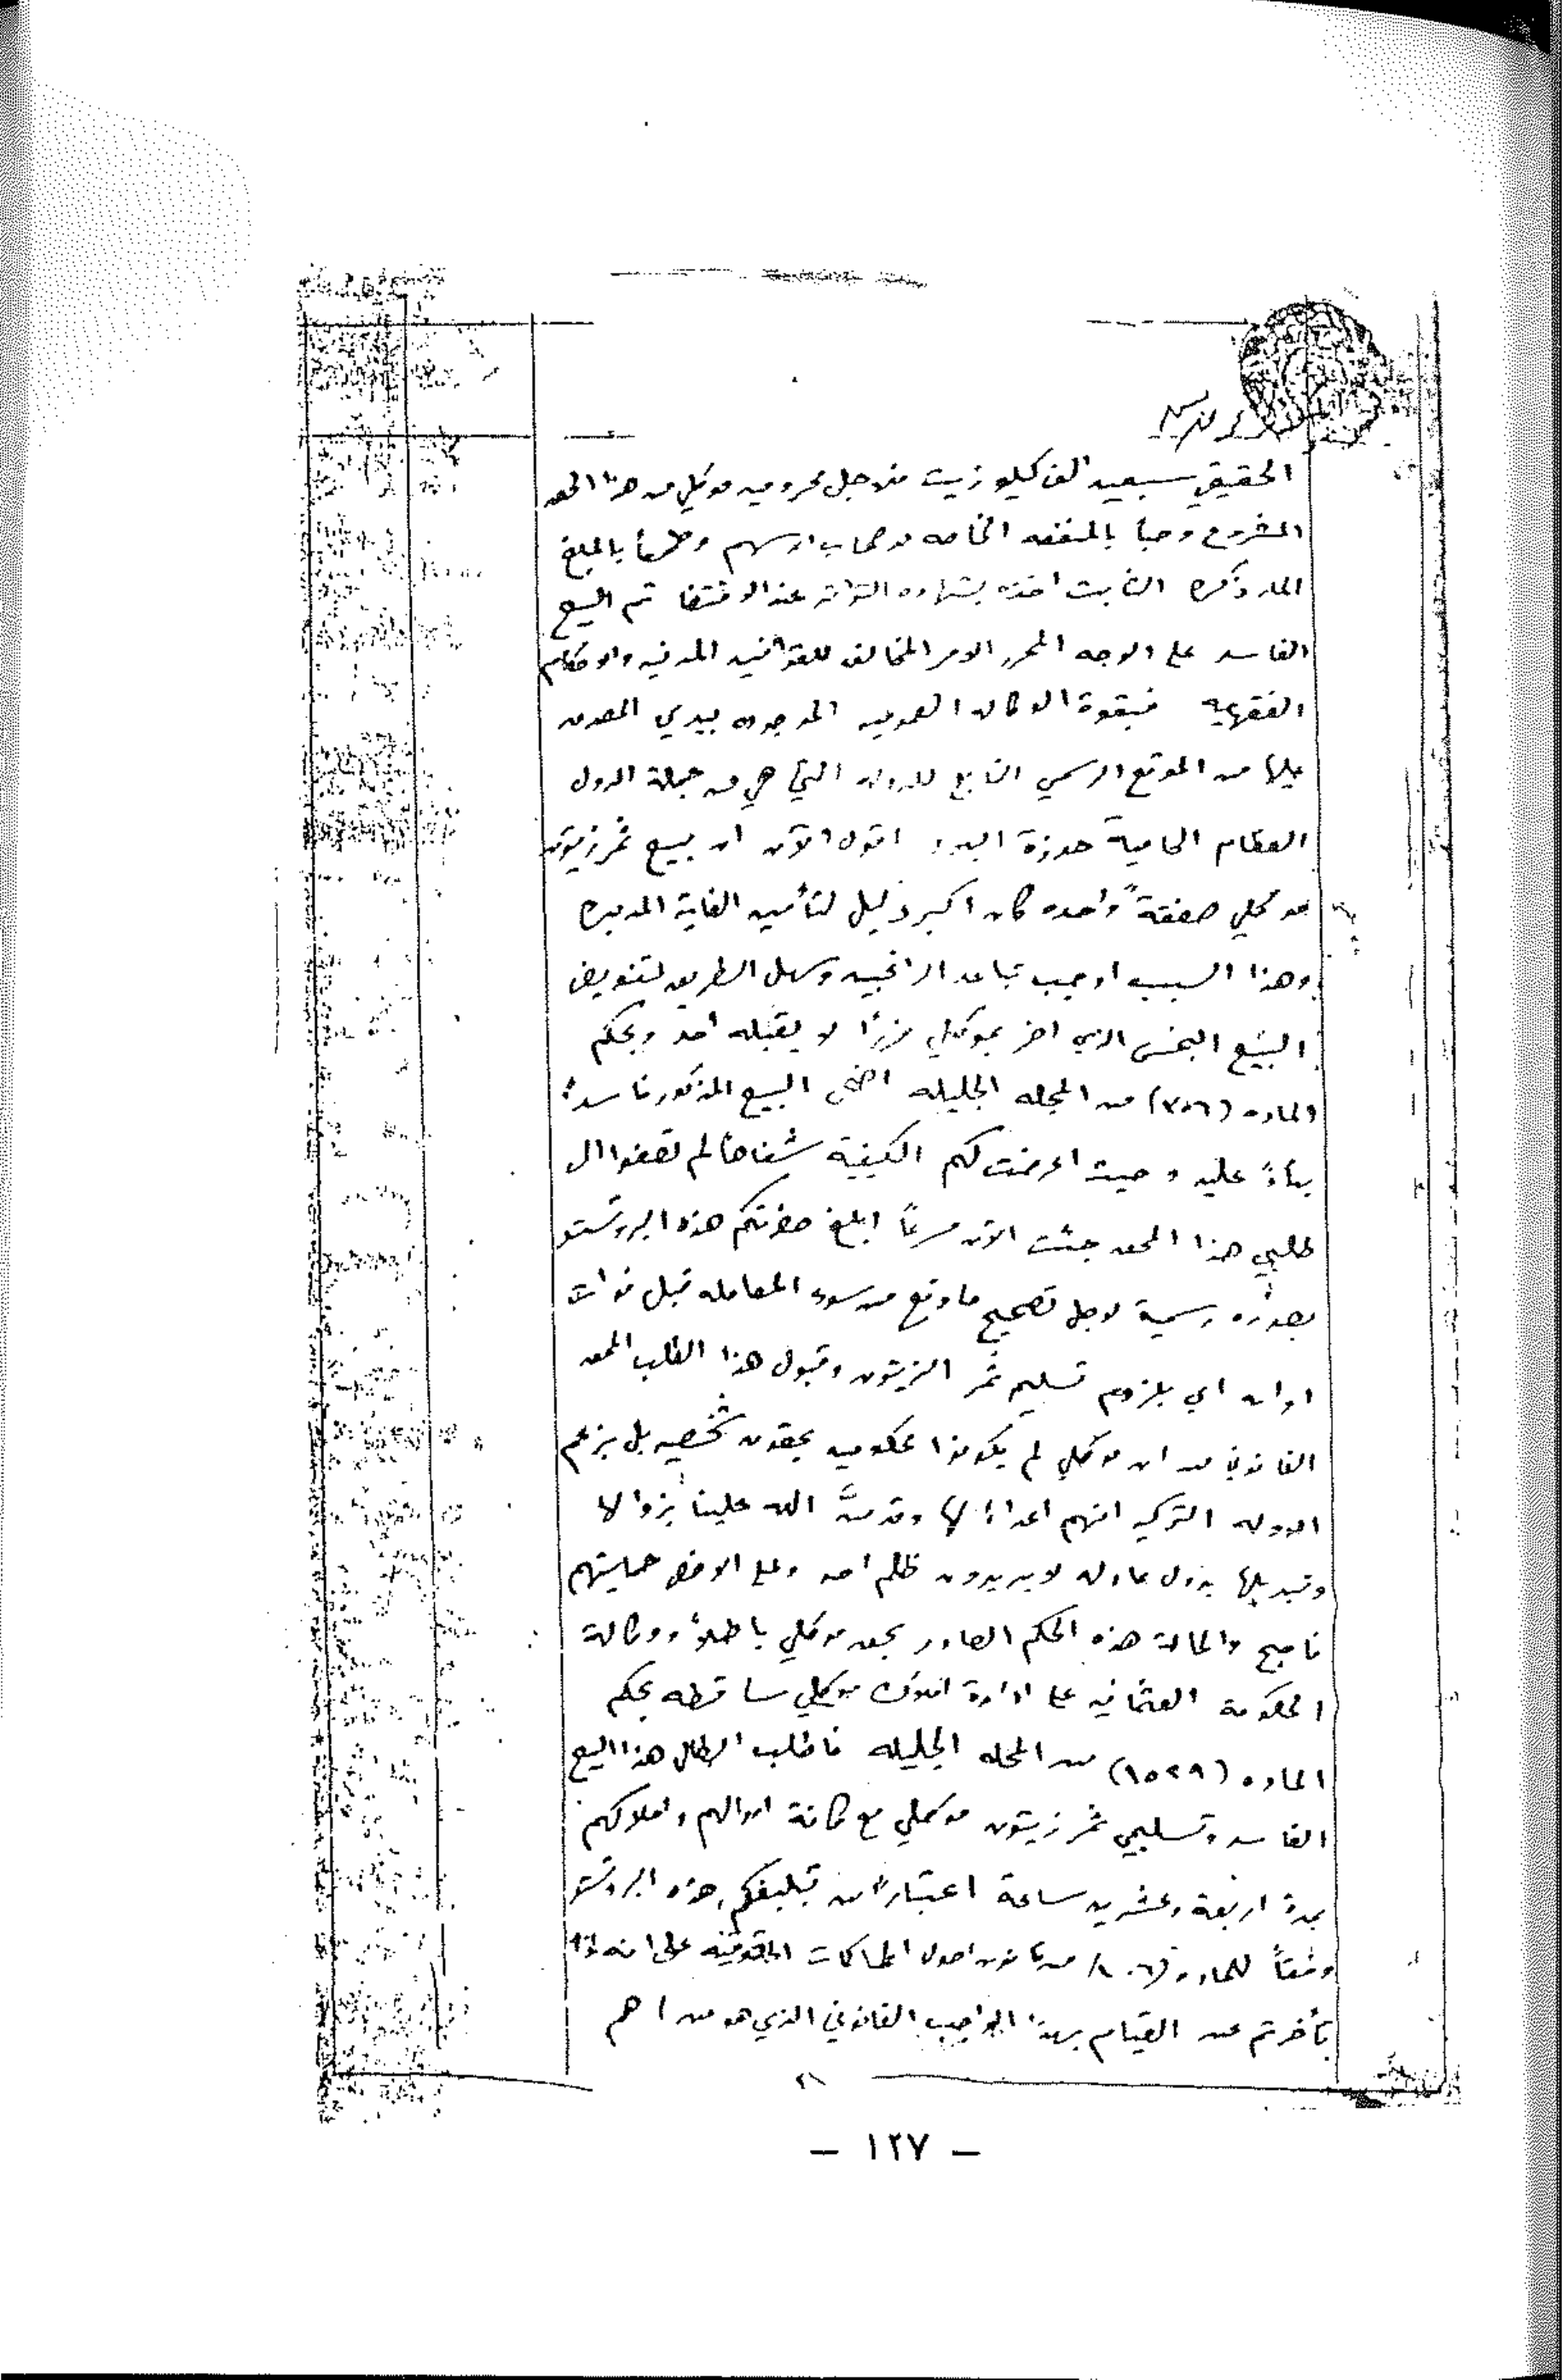 الحقيقي سبعين الف كيلو زيت فلاجل محروميه موكلي من هذا الحق
المشروع وحباً بالمنفعه الخاصه وطمعاً بالمبلغ
المار ذكره الثابت اخذه بشهاده التواتر عند الاقتضا تم البيع
الفاسد على الوجه المحرر الامر المخالف للقوانين المدنيه والاحكام
الفقهيه فبقوة الوكاله العموميه الموجوده بيدي المصدق
عليها من الموقع الرسمي التابع للدوله التي هي من جملة الدول
العظام الحامية حوزة البلاد اقول الآن ان بيع ثمر زيتون
موكلي صفقةً واحده كان اكبر دليل لتأمين الغاية المدبره
وهذا السبب اوجب تباعد الراغبين وسهل الطريق لتفويض
البيع البخس الذي اضر بموكلي ضرراً لا يقبله احد وبحكم
الماده (٣٥٦) من المجله الجليله اضحى البيع المذكور فاسداً
بناءً عليه وحيث اعرضت لكم الكيفية شفاهاً لم تصغوا الى
طلبي هذا المحق جئت الآن مسرعاً ابلغ حضرتكم هذه البروتستو
بصوره رسمية لاجل تصحيح ما وقع من سوء المعامله قبل فوات
اوانه اي بلزوم تسليم ثمر الزيتون وقبول هذا الطلب المحق
القانوني من ان موكلي لم يكونوا محكومين بحقوق شخصيه بل بزعم
الدوله التركيه انهم اعداءً لها وقد منَّ الله علينا بزوالها
وتبديلها بدول عادله لا يريدون ظلم احد وعلى الاخص حمايتهم
فاصبح والحالة هذه الحكم الصادر بحق موكلي باطلاً ووكالة
الحكومة العثمانيه على ادارة املاك موكلي ساقطه بحكم
الماده (١٥٢٩) من المجله الجليله فاطلب ابطال هذا البيع
الفاسد وتسليمي ثمر زيتون موكلي مع كافة اموالهم واملاكهم
بمدة اربعة وعشرين ساعة اعتباراً من تبليغكم هذه البروتستو
وفقاً للماده من قانون اصول المحاكمات الحقوقيه على انه اذا
تأخرتم عن القيام بهذا الواجب القانوني الذي هو من اهم
– ١٢٧ –